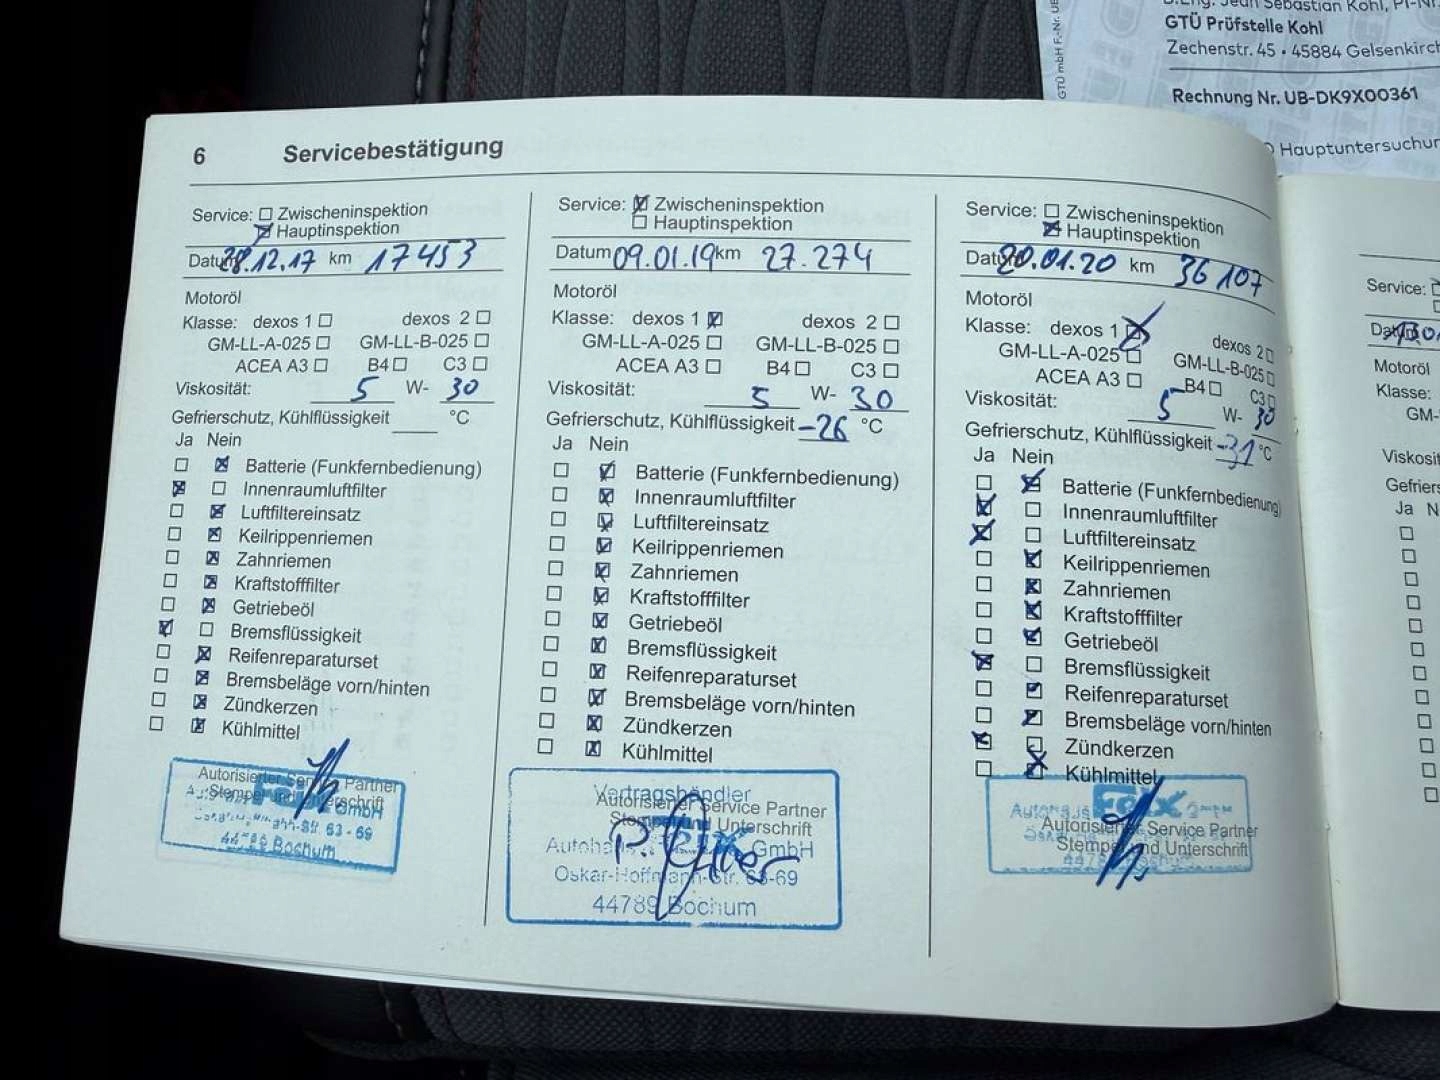 GTÜ Prüfstelle Kohl
Zechenstr. 45 • 45884 Gelsenkirch
Rechnung Nr. UB-DK9X00361
Hauptuntersuchun
GTÜ mbH F.-Nr. UB
6 Servicebestätigung
Service: Zwischeninspektion
Hauptinspektion
Datum 28.12.17 km 17453
Motoröl
Klasse: dexos 1 dexos 2
GM-LL-A-025 GM-LL-B-025
ACEA A3 B4 C3
Viskosität: 5 W- 30
Gefrierschutz, Kühlflüssigkeit °C
Ja Nein
Batterie (Funkfernbedienung)
Innenraumluftfilter
Luftfiltereinsatz
Keilrippenriemen
Zahnriemen
Kraftstofffilter
Getriebeöl
Bremsflüssigkeit
Reifenreparaturset
Bremsbeläge vorn/hinten
Zündkerzen
Kühlmittel
Autorisierter Service Partner
Stempel und Unterschrift
Feix GmbH
63-69
44789 Bochum
Service: Zwischeninspektion
Hauptinspektion
Datum 09.01.19 km 27.274
Motoröl
Klasse: dexos 1 dexos 2
GM-LL-A-025 GM-LL-B-025
ACEA A3 B4 C3
Viskosität: 5 W- 30
Gefrierschutz, Kühlflüssigkeit -26 °C
Ja Nein
Batterie (Funkfernbedienung)
Innenraumluftfilter
Luftfiltereinsatz
Keilrippenriemen
Zahnriemen
Kraftstofffilter
Getriebeöl
Bremsflüssigkeit
Reifenreparaturset
Bremsbeläge vorn/hinten
Zündkerzen
Kühlmittel
Vertragshändler
Autorisierter Service Partner
Stempel und Unterschrift
Autohaus Feix GmbH
Oskar-Hoffmann-Str. 63-69
44789 Bochum
Service: Zwischeninspektion
Hauptinspektion
Datum 20.01.20 km 36107
Motoröl
Klasse: dexos 1 dexos 2
GM-LL-A-025 GM-LL-B-025
ACEA A3 B4 C3
Viskosität: 5 W- 30
Gefrierschutz, Kühlflüssigkeit -31 °C
Ja Nein
Batterie (Funkfernbedienung)
Innenraumluftfilter
Luftfiltereinsatz
Keilrippenriemen
Zahnriemen
Kraftstofffilter
Getriebeöl
Bremsflüssigkeit
Reifenreparaturset
Bremsbeläge vorn/hinten
Zündkerzen
Kühlmittel
Autohaus Feix GmbH
Autorisierter Service Partner
Stempel und Unterschrift
Service:
Motoröl
Klasse:
GM-
Viskosit
Gefriers
Ja N